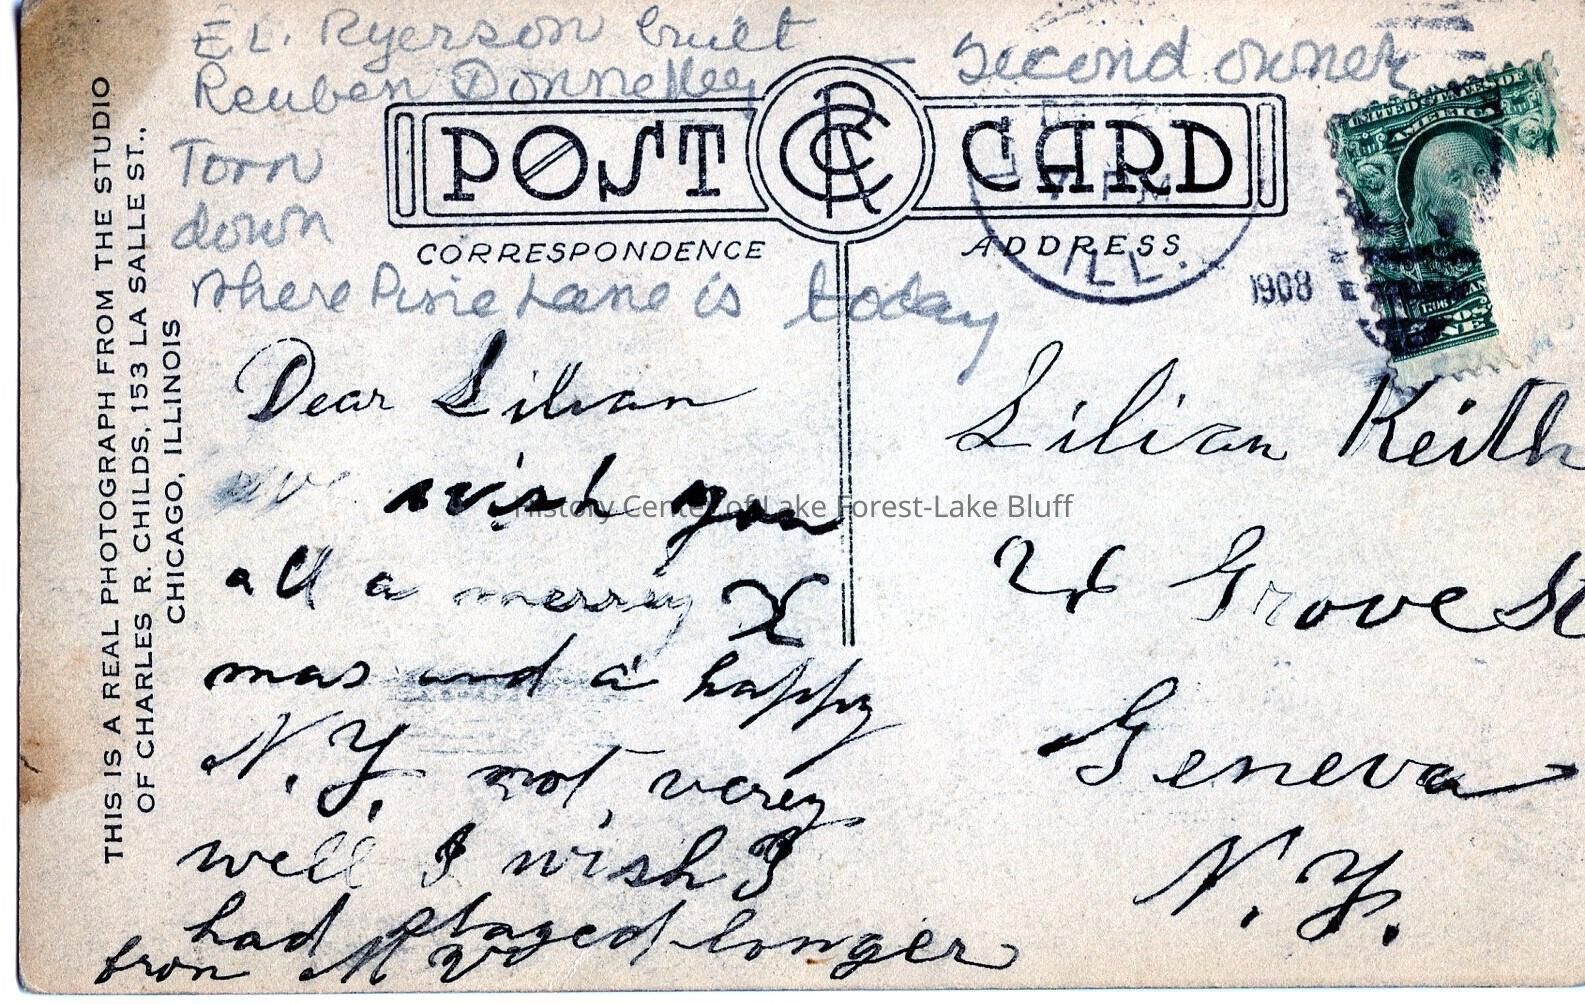 E.L. Ryerson built
Reuben Donnelley - Second owner
Torn
down
where Pine Lane is today
POST CARD
CORRESPONDENCE
ADDRESS
7 PM
ILL.
1908
UNITED STATES OF
AMERICA
THIS IS A REAL PHOTOGRAPH FROM THE STUDIO
OF CHARLES R. CHILDS, 153 LA SALLE ST.,
CHICAGO, ILLINOIS
Dear Lilian
we wish you
all a merry X
mas and a happy
N.Y. not very
well I wish I
had stayed longer
from
Lilian Keith
26 Grove St
Geneva
N.Y.
History Center of Lake Forest-Lake Bluff